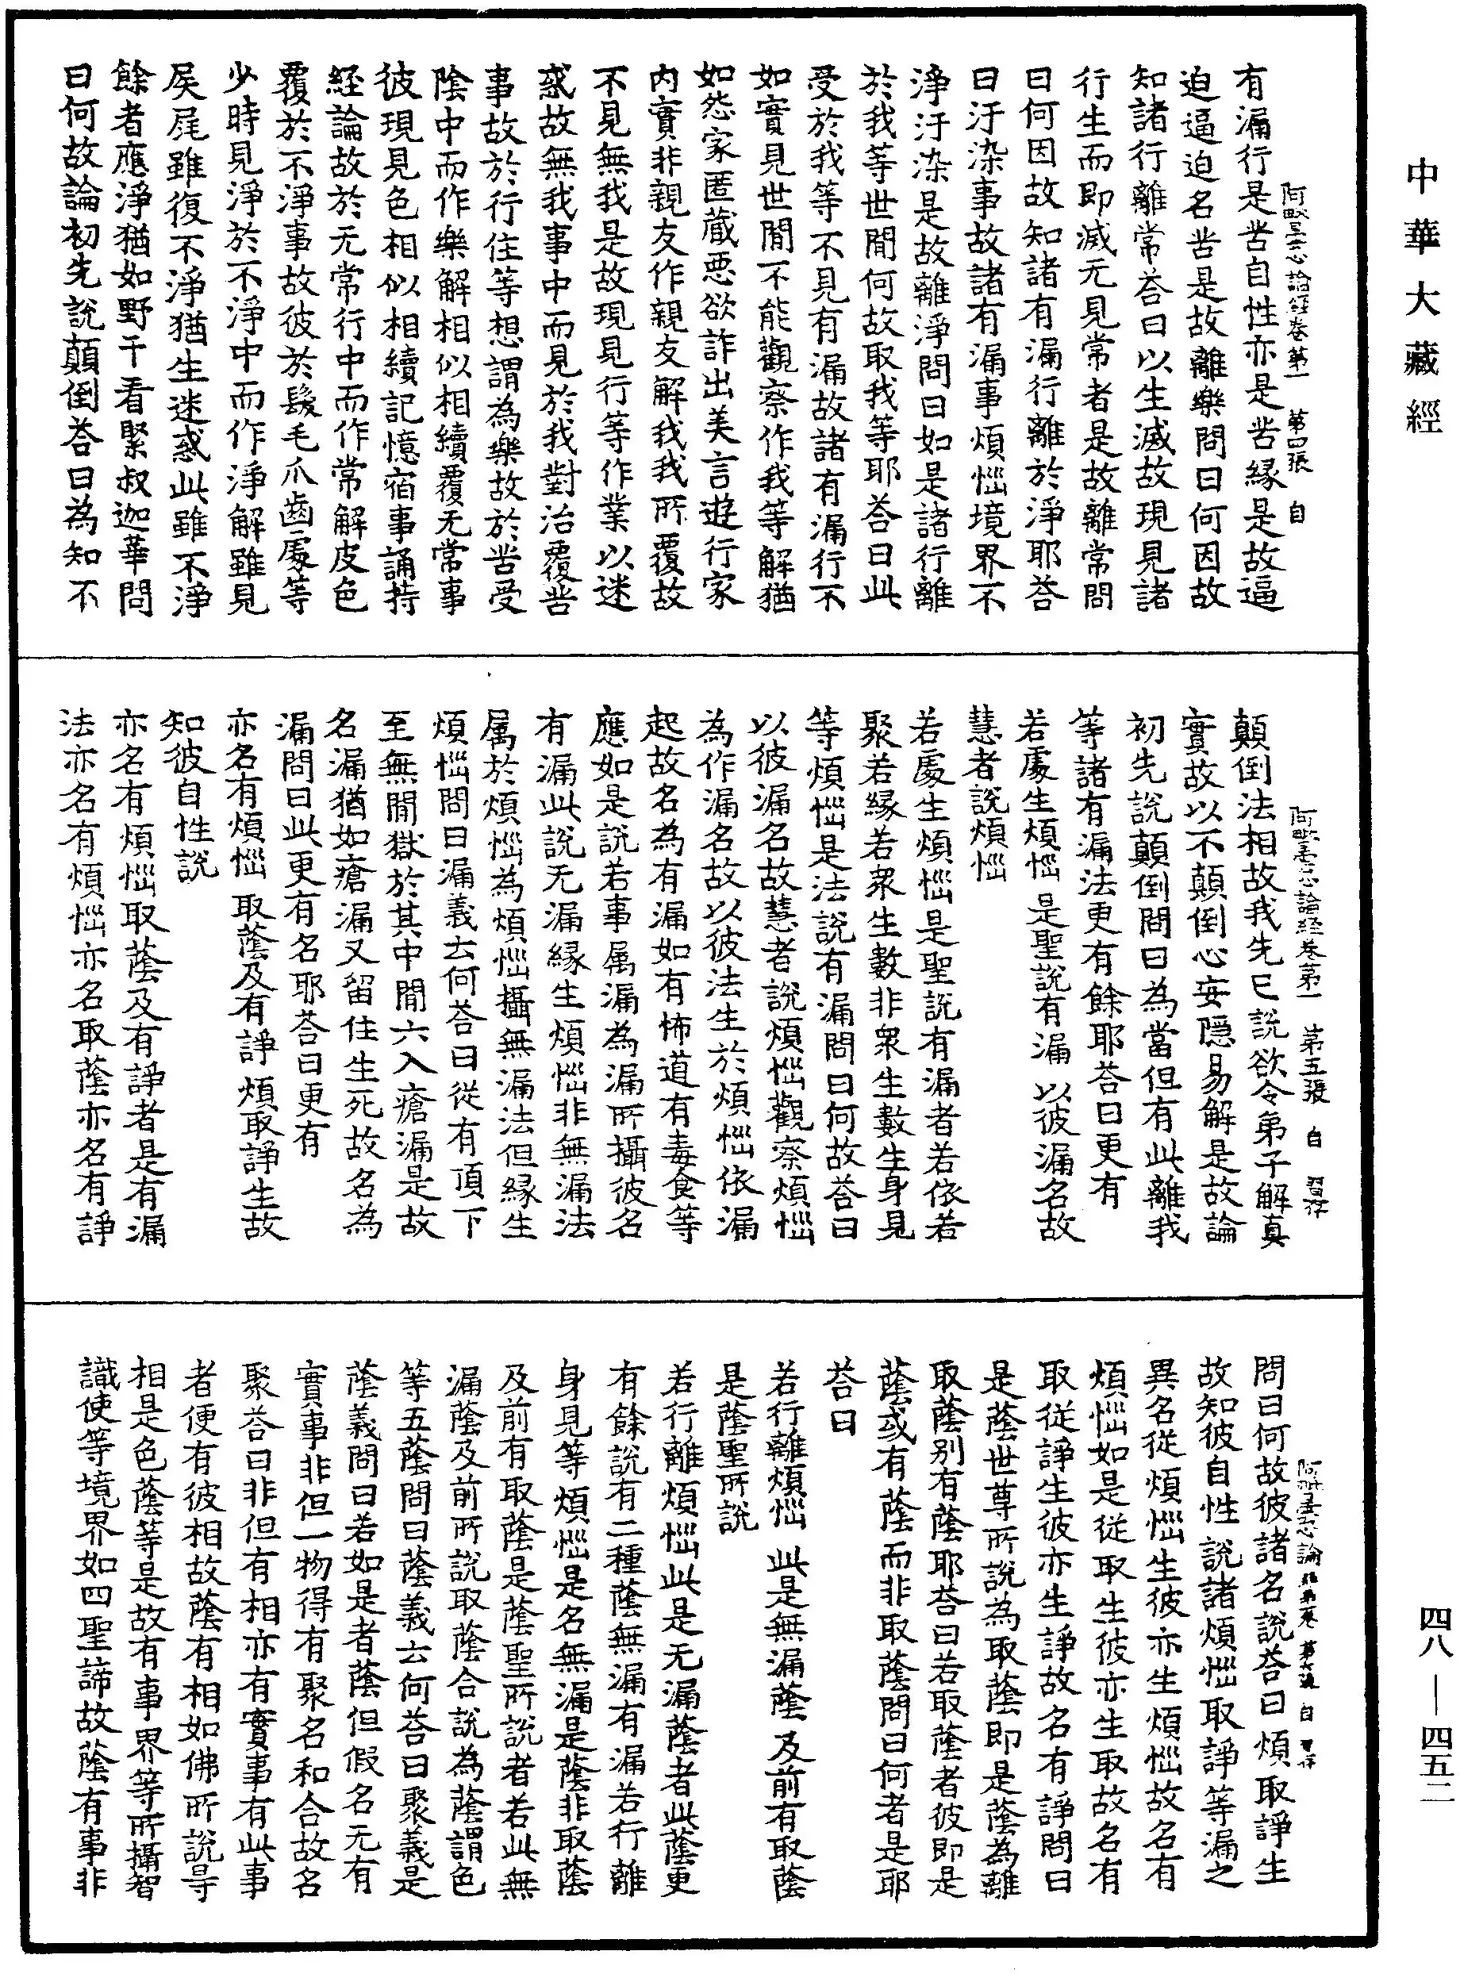 中華大藏經
阿毗曇心論經卷第一　第四張　自
有漏行是苦自性亦是苦緣是故逼
迫逼迫名苦是故離樂問曰何因故
知諸行離常荅曰以生滅故現見諸
行生而即滅无見常者是故離常問
曰何因故知諸有漏行離於淨耶荅
曰汙染事故諸有漏事煩惱境界不
淨汙染是故離淨問曰如是諸行離
於我等世間何故取我等耶荅曰此
受於我等不見有漏故諸有漏行不
如實見世間不能觀察作我等解猶
如怨家匿藏惡欲詐出美言遊行家
內實非親友作親友解我我所覆故
不見無我是故現見行等作業以迷
惑故無我事中而見於我對治覆苦
事故於行住等想謂為樂故於苦受
陰中而作樂解相似相續覆无常事
彼現見色相似相續記憶宿事誦持
經論故於无常行中而作常解皮色
覆於不淨事故彼於髮毛爪齒處等
少時見淨於不淨中而作淨解雖見
屎尾雖復不淨猶生迷惑此雖不淨
餘者應淨猶如野干看緊叔迦華問
曰何故論初先說顛倒荅曰為知不
阿毗曇心論經卷第一　第五張　自
顛倒法相故我先已說欲令弟子解真
實故以不顛倒心安隱易解是故論
初先說顛倒問曰為當但有此離我
等諸有漏法更有餘耶荅曰更有
若處生煩惱　是聖說有漏　以彼漏名故
慧者說煩惱
若處生煩惱是聖說有漏者若依若
聚若緣若衆生數非衆生數生身見
等煩惱是法說有漏問曰何故荅曰
以彼漏名故慧者說煩惱觀察煩惱
為作漏名故以彼法生於煩惱依漏
起故名為有漏如有怖道有毒食等
應如是說若事属漏為漏所攝彼名
有漏此說无漏緣生煩惱非無漏法
属於煩惱為煩惱攝無漏法但緣生
煩惱問曰漏義云何荅曰從有頂下
至無間獄於其中間六入瘡漏是故
名漏猶如瘡漏又留住生死故名為
漏問曰此更有名耶荅曰更有
亦名有煩惱　取蔭及有諍　煩取諍生故
知彼自性說
亦名有煩惱取蔭及有諍者是有漏
法亦名有煩惱亦名取蔭亦名有諍
問曰何故彼諸名說荅曰煩取諍生
故知彼自性說諸煩惱取諍等漏之
異名從煩惱生彼亦生煩惱故名有
煩惱如是從取生彼亦生取故名有
取從諍生彼亦生諍故名有諍問曰
是蔭世尊所說為取蔭即是蔭為離
取蔭别有蔭耶荅曰若取蔭者彼即是
蔭或有蔭而非取蔭問曰何者是耶
荅曰
若行離煩惱　此是無漏蔭　及前有取蔭
是蔭聖所說
若行離煩惱此是无漏蔭者此蔭更
有餘說有二種蔭無漏有漏若行離
身見等煩惱是名無漏是蔭非取蔭
及前有取蔭是蔭聖所說者若此無
漏蔭及前所說取蔭合說為蔭謂色
等五蔭問曰蔭義云何荅曰聚義是
蔭義問曰若如是者蔭但假名无有
實事非但一物得有聚名和合故名
聚荅曰非但有相亦有實事有此事
者便有彼相故蔭有相如佛所說㝵
相是色蔭等是故有事界等所攝智
識使等境界如四聖諦故蔭有事非
四八—四五二